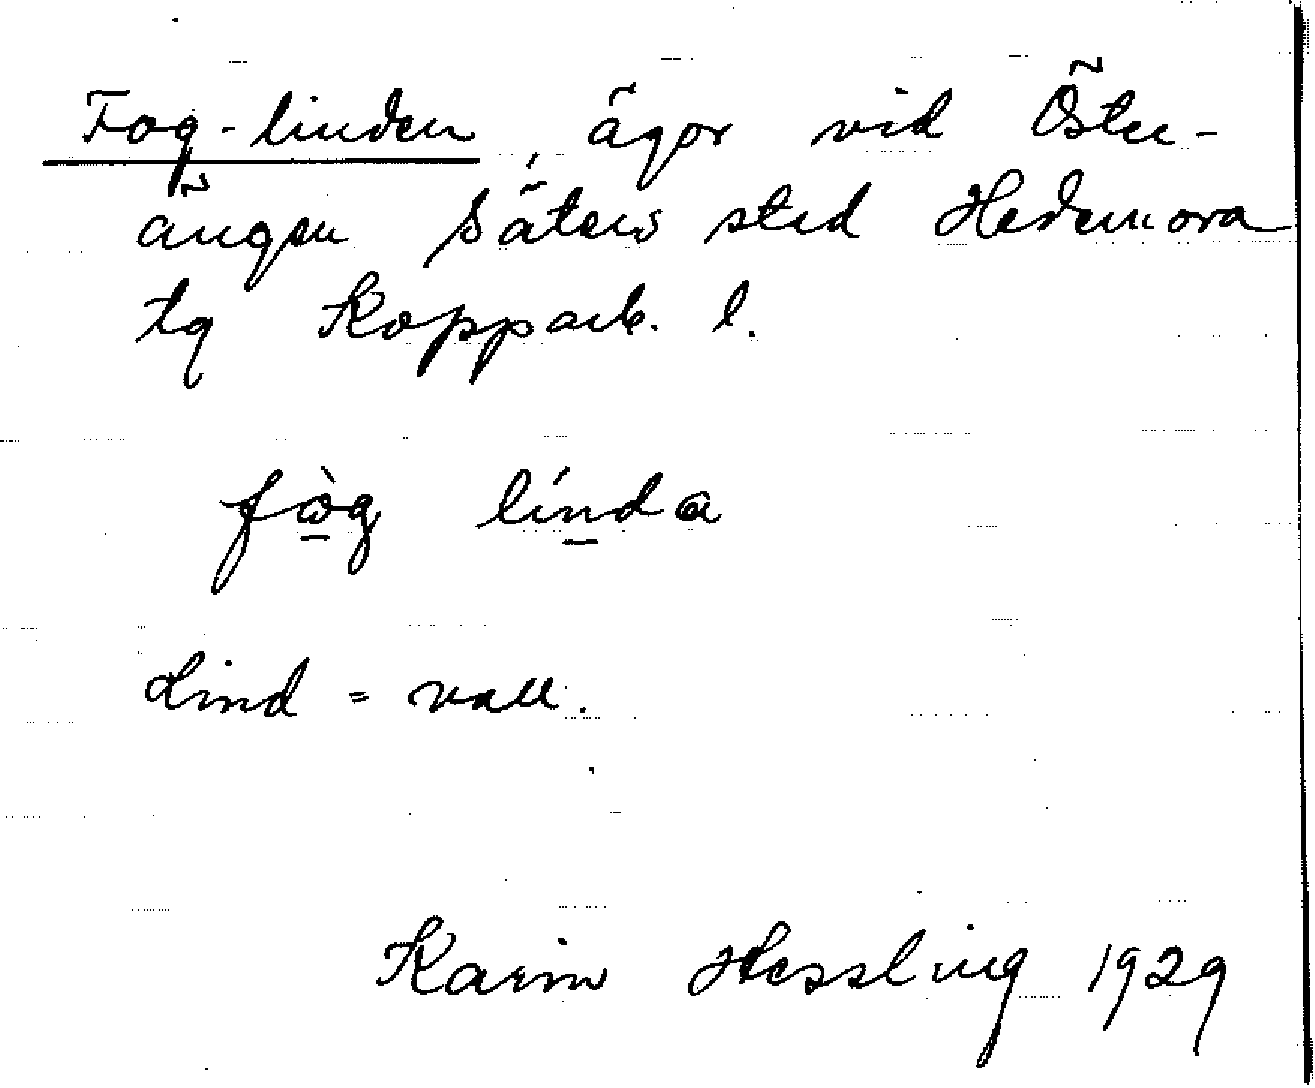 Fog-linden, ägor vid Öster-
ängen Säters stad Hedemora
tg Kopparb. l.
fὼg línda
Lind = vall.
Karin Hessling 1929